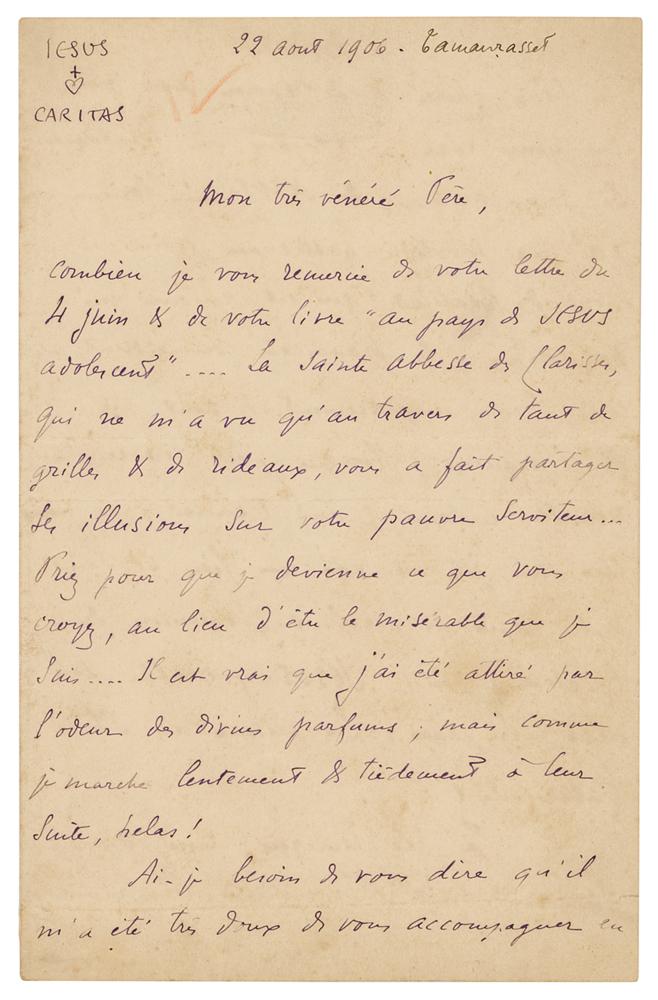 IESUS
CARITAS
22 aout 1906 - Tamanrasset
Mon très vénéré Père,
combien je vous remercie de votre lettre du
4 juin & de votre livre "au pays de JESUS
adolescent" .... La Sainte Abbesse des Clarisses,
qui ne m'a vu qu'au travers de tant de
grilles & de rideaux, vous a fait partager
ses illusions sur votre pauvre serviteur...
Priez pour que je devienne ce que vous
croyez, au lieu d'être le misérable que je
suis.... Il est vrai que j'ai été attiré par
l'odeur des divins parfums ; mais comme
je marche lentement & tièdement à leur
suite, hélas !
Ai-je besoin de vous dire qu'il
m'a été très doux de vous accompagner en